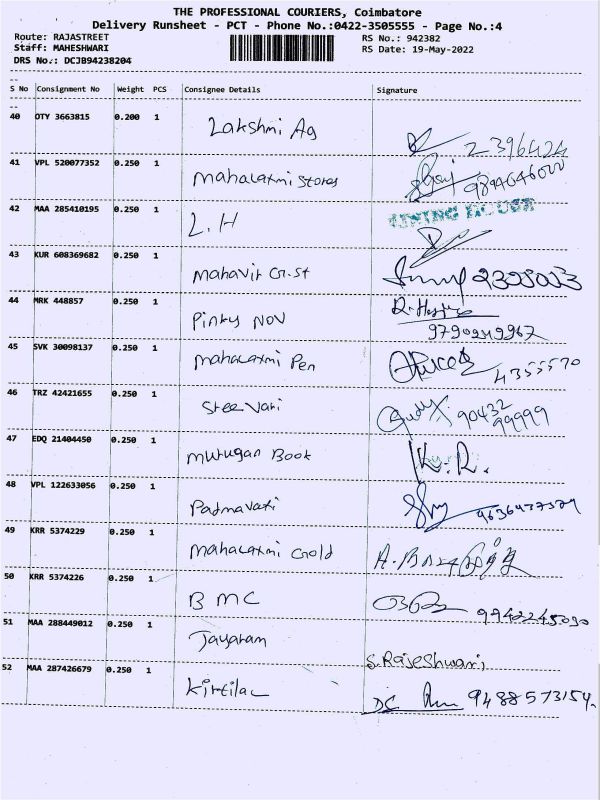 THE PROFESSIONAL COURIERS, Coimbatore
Delivery Runsheet - PCT - Phone No.:0422-3505555 - Page No.:4
Route: RAJASTREET
RS No.: 942382
Staff: MAHESHWARI
RS Date: 19-May-2022
DRS No.: DCJB94238204
S No Consignment No Weight PCS Consignee Details Signature
40 OTY 3663815 0.200 1 Lakshmi Ag 2396424
41 VPL 520077352 0.250 1 Mahalaxmi Stores
42 MAA 285410195 0.250 1 L.H
43 KUR 608369682 0.250 1 Mahavir G.St
44 MRK 448857 0.250 1 Pinky Nov
9790949967
45 SVK 30098137 0.250 1 Mahalaxmi Pen 4355570
46 TRZ 42421655 0.250 1 Sree Vari 90432
99999
47 EDQ 21404450 0.250 1 Murugan Book K.R.
48 VPL 122633056 0.250 1 Padmavati
49 KRR 5374229 0.250 1 Mahalaxmi Gold
50 KRR 5374226 0.250 1 BMC 9942245090
51 MAA 288449012 0.250 1 Jayaram S.Rajeshwari
52 MAA 287426679 0.250 1 Kirtilal DC 9488573154